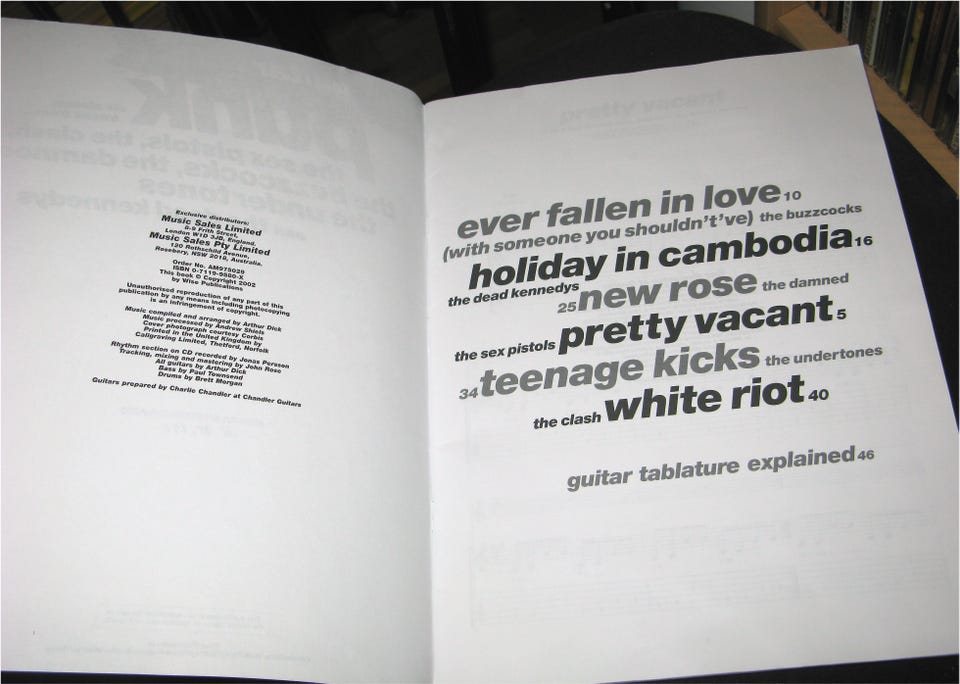 Exclusive distributors:
Music Sales Limited
8-9 Frith Street,
London W1D 3JB, England.
Music Sales Pty Limited
120 Rothschild Avenue,
Rosebery, NSW 2018, Australia.
Order No. AM975029
ISBN 0-7119-9580-X
This book © Copyright 2002
by Wise Publications
Unauthorised reproduction of any part of this
publication by any means including photocopying
is an infringement of copyright.
Music compiled and arranged by Arthur Dick
Music processed by Andrew Shiels
Cover photograph courtesy Corbis
Printed in the United Kingdom by
Caligraving Limited, Thetford, Norfolk
Rhythm section on CD recorded by Jonas Persson
Tracking, mixing and mastering by John Rose
All guitars by Arthur Dick
Bass by Paul Townsend
Drums by Brett Morgan
Guitars prepared by Charlie Chandler at Chandler Guitars
ever fallen in love 10
(with someone you shouldn't've) the buzzcocks
holiday in cambodia 16
the dead kennedys
25 new rose the damned
the sex pistols pretty vacant 5
34 teenage kicks the undertones
the clash white riot 40
guitar tablature explained 46